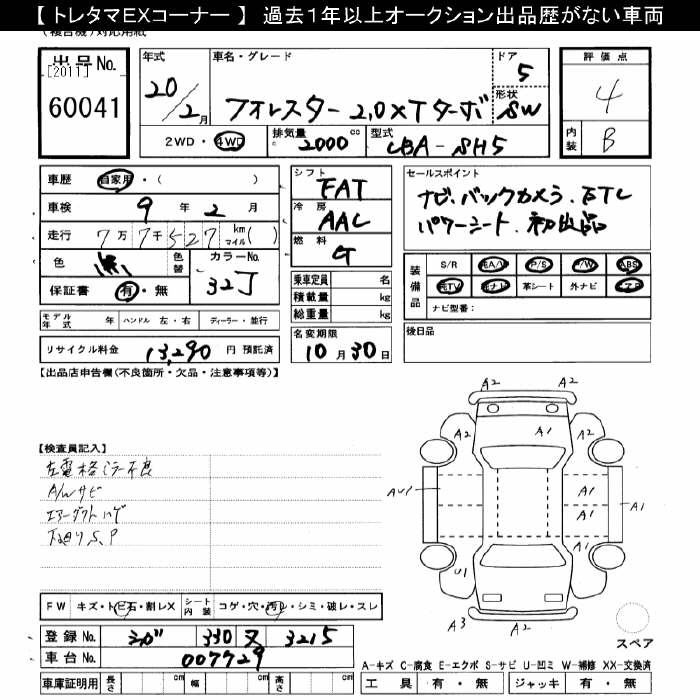 【トレタマEXコーナー】 過去1年以上オークション出品歴がない車両
出品No.
[2011]
60041
年式
20/2月
車名・グレード
フォレスター 2.0XT ターボ
ドア
5
形状
SW
評価点
4
内装
B
2WD・4WD
排気量
2000cc
型式
CBA-SH5
車歴 自家用・( )
車検 9年2月
走行 7万7千527 km マイル( )
色 黒 色替
カラーNo.
32J
保証書 有・無
シフト
FAT
冷房
AAC
燃料
G
乗車定員 名
積載量 kg
総重量 kg
セールスポイント
ナビ.バックカメラ.ETC
パワーシート.初出品
装備品
S/R エA/V P/S P/W ABS
純TV 純ナビ 革シート 外ナビ エアB
ナビ型番:
モデル年式 年 ハンドル 左・右 ディーラー・並行
リサイクル料金 13,290円 預託済
名変期限
10月30日
後日品
【出品店申告欄(不良箇所・欠品・注意事項等)】
【検査員記入】
左電格ミラー不良
A/Wサビ
エアーダクトハゲ
下廻りS.P
A2 A2
A2 A1 A2
AU1 A1 A1 A1
U1
A3 A2
スペア
FW キズ・トビ石・割レX シート内装 コゲ・穴・汚レ・シミ・破レ・スレ
登録No. 330 又 3215
車台No. 007729
車庫証明用 長さ cm 幅 cm 高さ cm
A-キズ C-腐食 E-エクボ S-サビ U-凹ミ W-補修 XX-交換済
工具 有・無 ジャッキ 有・無